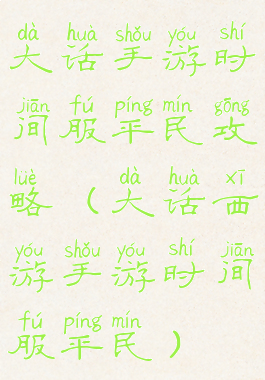 dà huà shǒu yóu shí
大话手游时
jiān fú píng mín gōng
间服平民攻
lüè dà huà xī
略（大话西
yóu shǒu yóu shí jiān
游手游时间
fú píng mín
服平民）